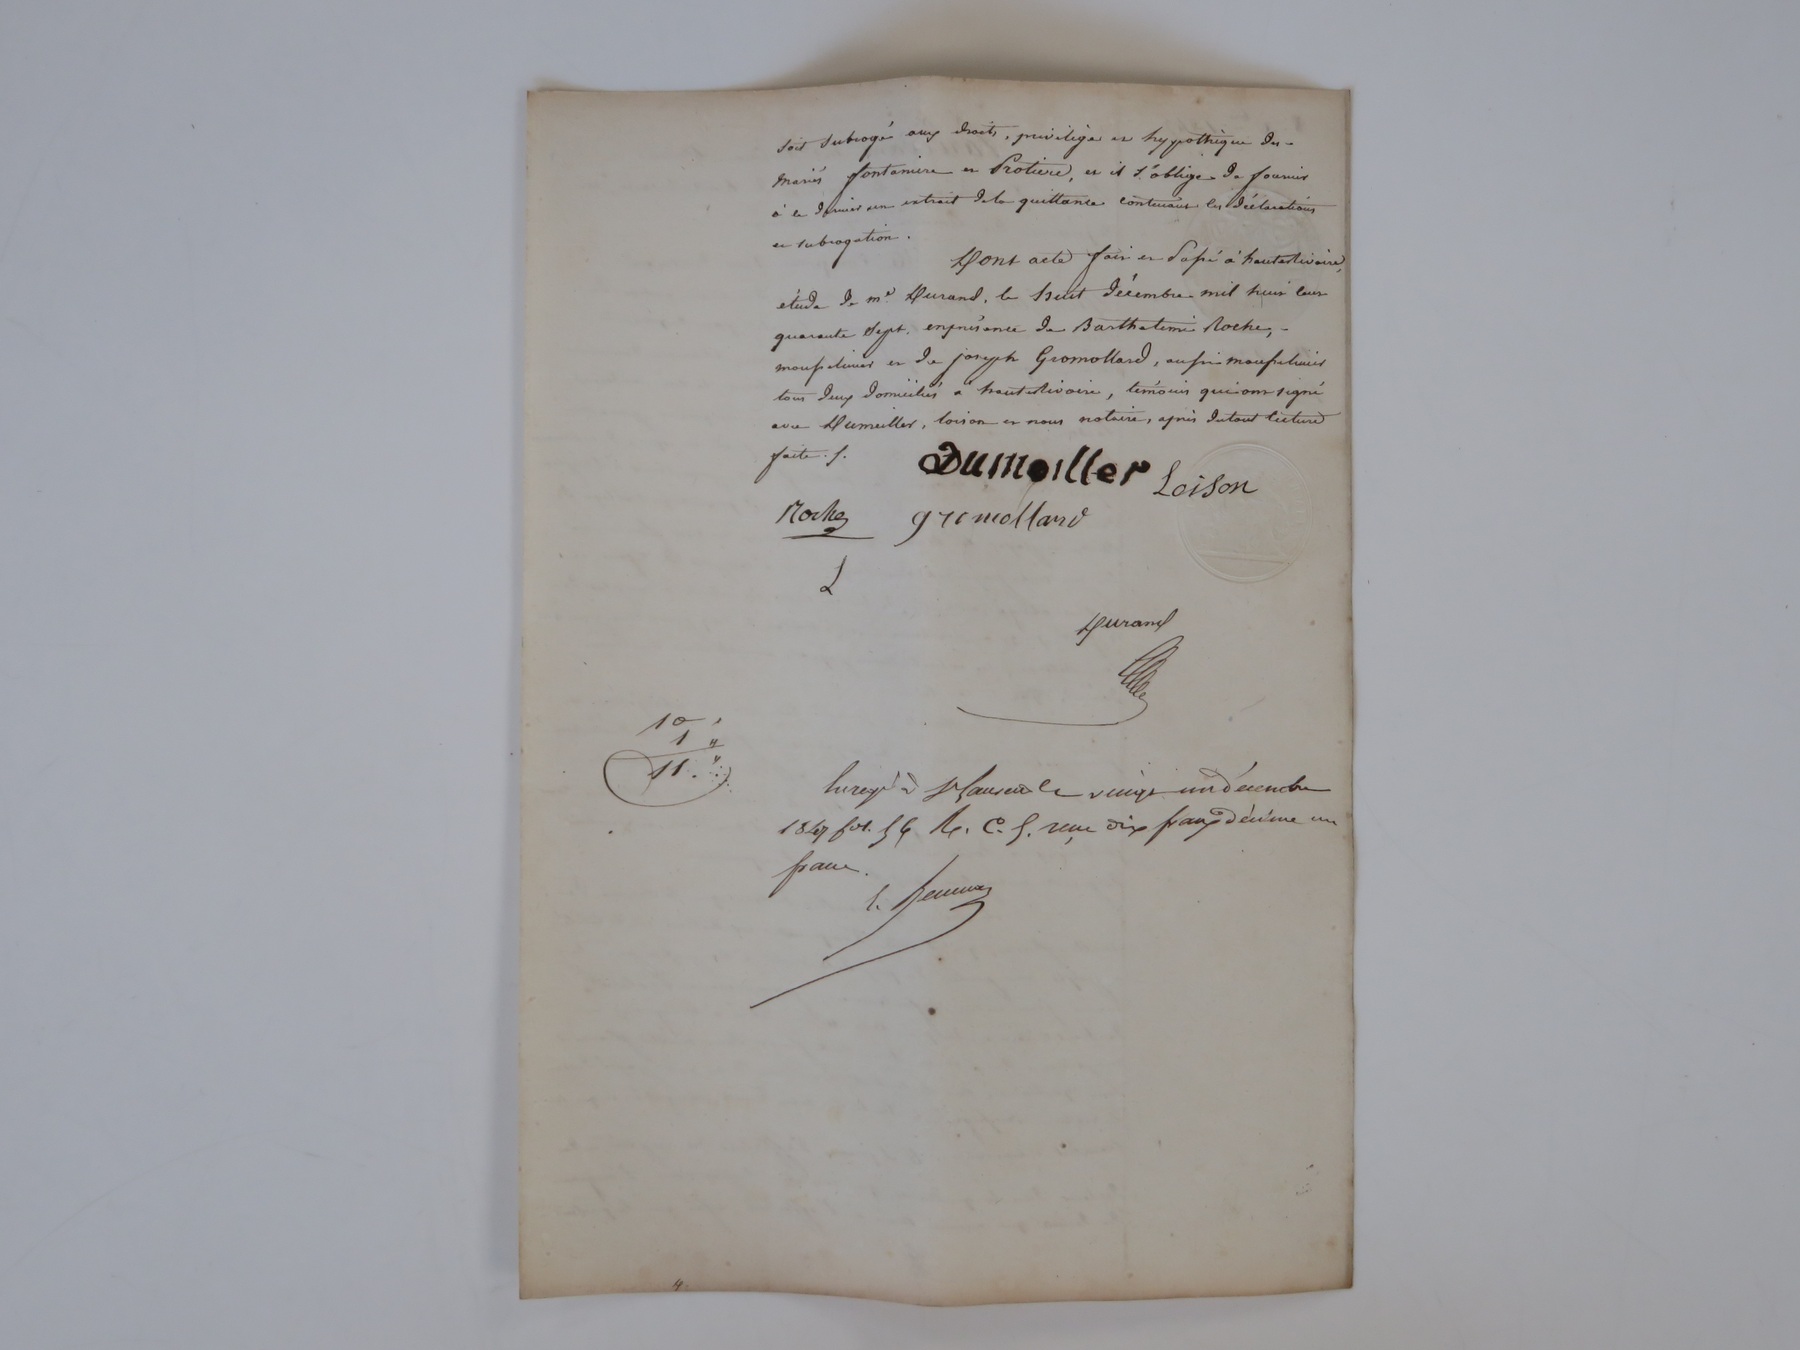 soit subrogé aux droits, privilège et hypothèque des
mariés fontanière et Protière, et il s'oblige de fournir
à ce dernier un extrait de la quittance contenant les déclarations
et subrogation.
Dont acte fait et Passé à hauterivoire,
étude de me. Durand, le huit décembre mil huit cent
quarante Sept. enprésence de Barthelemi Roche,
mousselinier et de joseph Gromollard, aussi mousselinier
tous deux domiciliés à hauterivoire, témoins qui ont signé
avec Dumeiller, loison et nous notaire, après detout lecture
faite. /.
Dumoiller
Loison
Roche
gromollard
Durand
10 "
1 "
11. "
Enregé à St Laurent le vingt un décembre
1847 fol. 56 R. C. 5. reçu dix francs décime un
franc.
4.